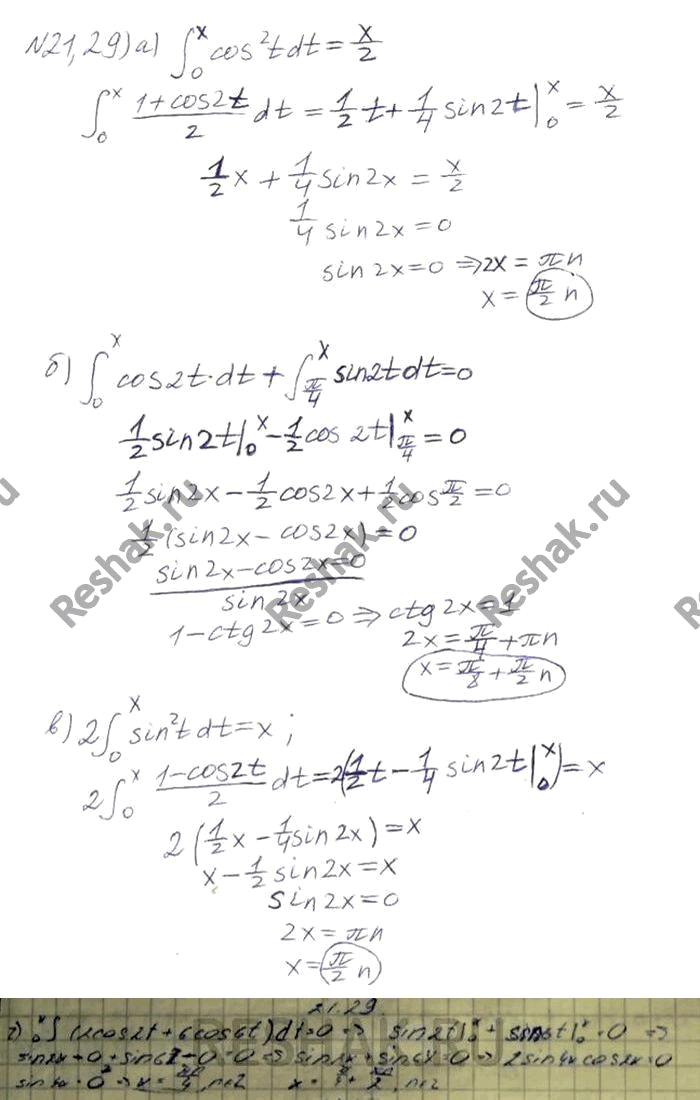 N21,29) а) ∫₀ˣ cos²t dt = x/2
∫₀ˣ (1+cos2t)/2 dt = 1/2 t + 1/4 sin2t |₀ˣ = x/2
1/2 x + 1/4 sin2x = x/2
1/4 sin2x = 0
sin2x=0 ⇒ 2x = πn
x = π/2 n
б) ∫₀ˣ cos2t·dt + ∫_{π/4}^x sin2tdt=0
1/2 sin2t|₀ˣ - 1/2 cos 2t|_{π/4}^x = 0
1/2 sin2x - 1/2 cos2x + 1/2 cos π/2 = 0
1/2 (sin2x - cos2x) = 0
sin2x-cos2x=0
sin2x
1-ctg2x=0 ⇒ ctg2x=1
2x = π/4 + πn
x = π/8 + π/2 n
в) 2∫₀ˣ sin²t dt = x ;
2∫₀ˣ (1-cos2t)/2 dt = 2(1/2 t - 1/4 sin2t|₀ˣ) = x
2(1/2 x - 1/4 sin2x) = x
x - 1/2 sin2x = x
sin2x=0
2x = πn
x = π/2 n
Reshak.ru
Reshak.ru
Reshak.ru
21.29.
г) ₀ˣ∫(2cos2t+6cos6t)dt=0 ⇒ sin2t|₀ˣ + sin6t|₀ˣ = 0 ⇒
sin2x+0+sin6x-0=0 ⇒ sin2x+sin6x=0 ⇒ 2sin4xcos2x=0
sin4x=0 ⇒ x = πn/4, n∈Z x = π/4 + πn/2, n∈Z
RESHAK.RU